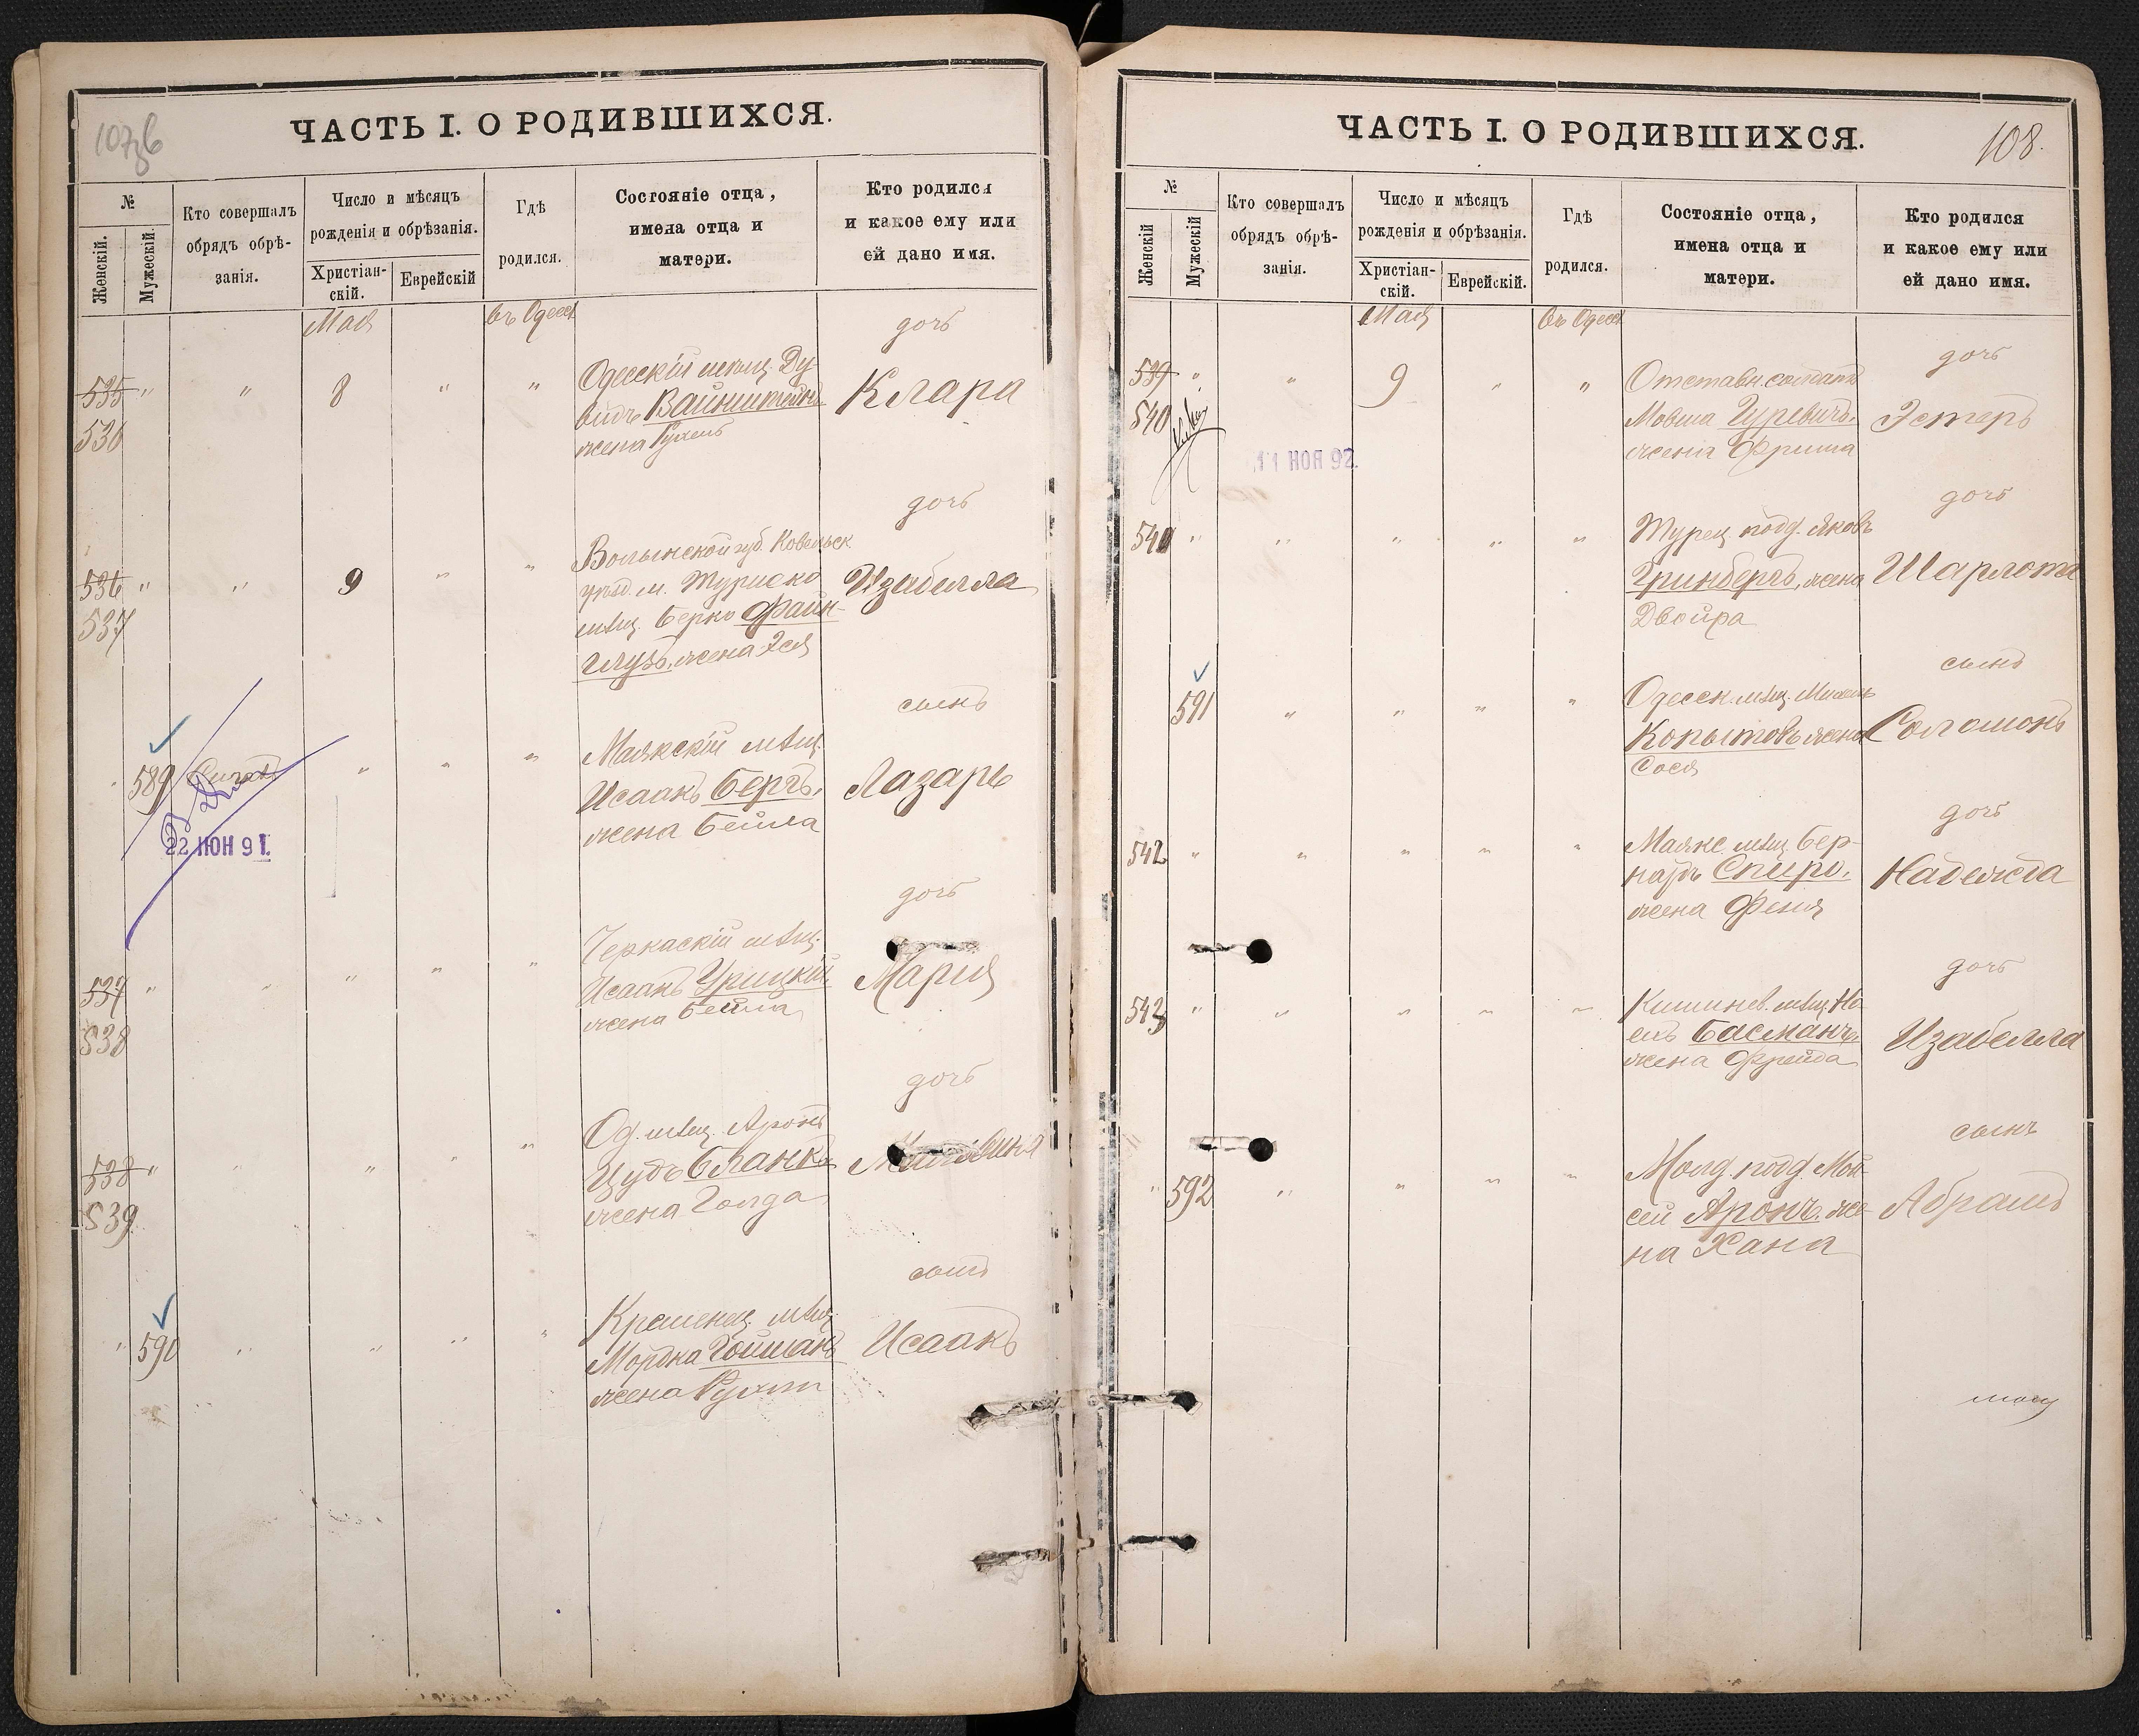 107 об
ЧАСТЬ I. О РОДИВШИХСЯ.
№
Женскій.
Мужескій.
Кто совершалъ
обрядъ обрѣ-
занія.
Число и мѣсяцъ
рожденія и обрѣзанія.
Христіан-
скій.
Еврейскій
Гдѣ
родился.
Состояніе отца,
имена отца и
матери.
Кто родился
и какое ему или
ей дано имя.
Мая
въ Одессѣ
дочь
535 " " 8 " "
536
Одесскій мѣщ. Ду-
видъ Вайнштейнъ
жена Рухель
Клара
дочь
536 " " 9 " "
537
Волынской губ. Ковельск
уѣзд. м. Туриско
мѣщ. Берко Файн-
глузъ, жена Эся
Изабелла
сынъ
589
22 ИЮН 91.
Маякскій мѣщ.
Исаакъ Бергъ,
жена Бейла
Лазарь
дочь
537 " " " " "
538
Черкаскій мѣщ.
Исаакъ Урицкій
жена Бейла
Марія
дочь
538 " " " " "
539
Од. мѣщ. Аронъ
Цудъ Бланкъ
жена Голда
сынъ
" 590 " " " "
Кременец. мѣщ.
Мордка Гойманъ
жена Рухля
Исаакъ
ЧАСТЬ I. О РОДИВШИХСЯ.
108.
№
Женскій
Мужескій
Кто совершалъ
обрядъ обрѣ-
занія.
Число и мѣсяцъ
рожденія и обрѣзанія.
Христіан-
скій.
Еврейскій.
Гдѣ
родился.
Состояніе отца,
имена отца и
матери.
Кто родился
и какое ему или
ей дано имя.
Мая
въ Одессѣ
дочь
539 " " 9 " "
540
11 НОЯ 92.
Отставн. солдатъ
Мовша Гуревичъ,
жена Фрима
Эстеръ
дочь
541 " " " " "
Турец. подд. Яковъ
Гринбергъ, жена
Двойра
Шарлота
сынъ
591 " " " "
Одесск. мѣщ.
Копытовъ жена
Сося
Соломонъ
дочь
542 " " " " "
Маякс. мѣщ. Бер-
нардъ Спиро,
жена Феня
Надежда
дочь
543 " " " " "
Кишинев. мѣщ.
Басманъ,
жена Фрейда
Изабелла
сынъ
" 592 " " " "
Молд. подд. Мой-
сей Аронъ, же-
на Хана
Абрамъ